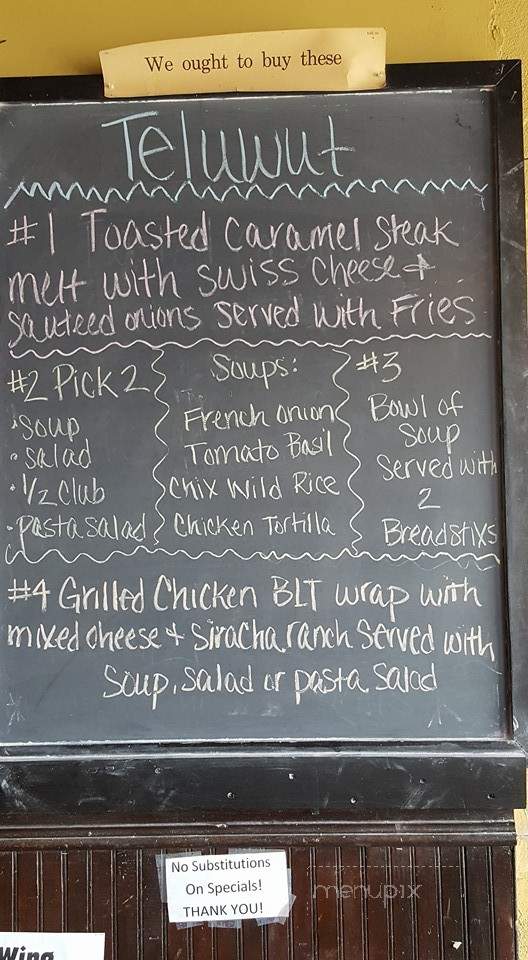 We ought to buy these
Teluwut
#1 Toasted Caramel Steak
melt with swiss cheese +
sauteed onions served with Fries
#2 Pick 2
• soup
• salad
• 1/2 club
• pasta salad
Soups:
French onion
Tomato Basil
Chix Wild Rice
Chicken Tortilla
#3
Bowl of
Soup
Served with
2
Breadstixs
#4 Grilled Chicken BLT wrap with
mixed cheese + siracha ranch Served with
Soup, salad or pasta salad
No Substitutions
On Specials!
THANK YOU!
menupix
Wing